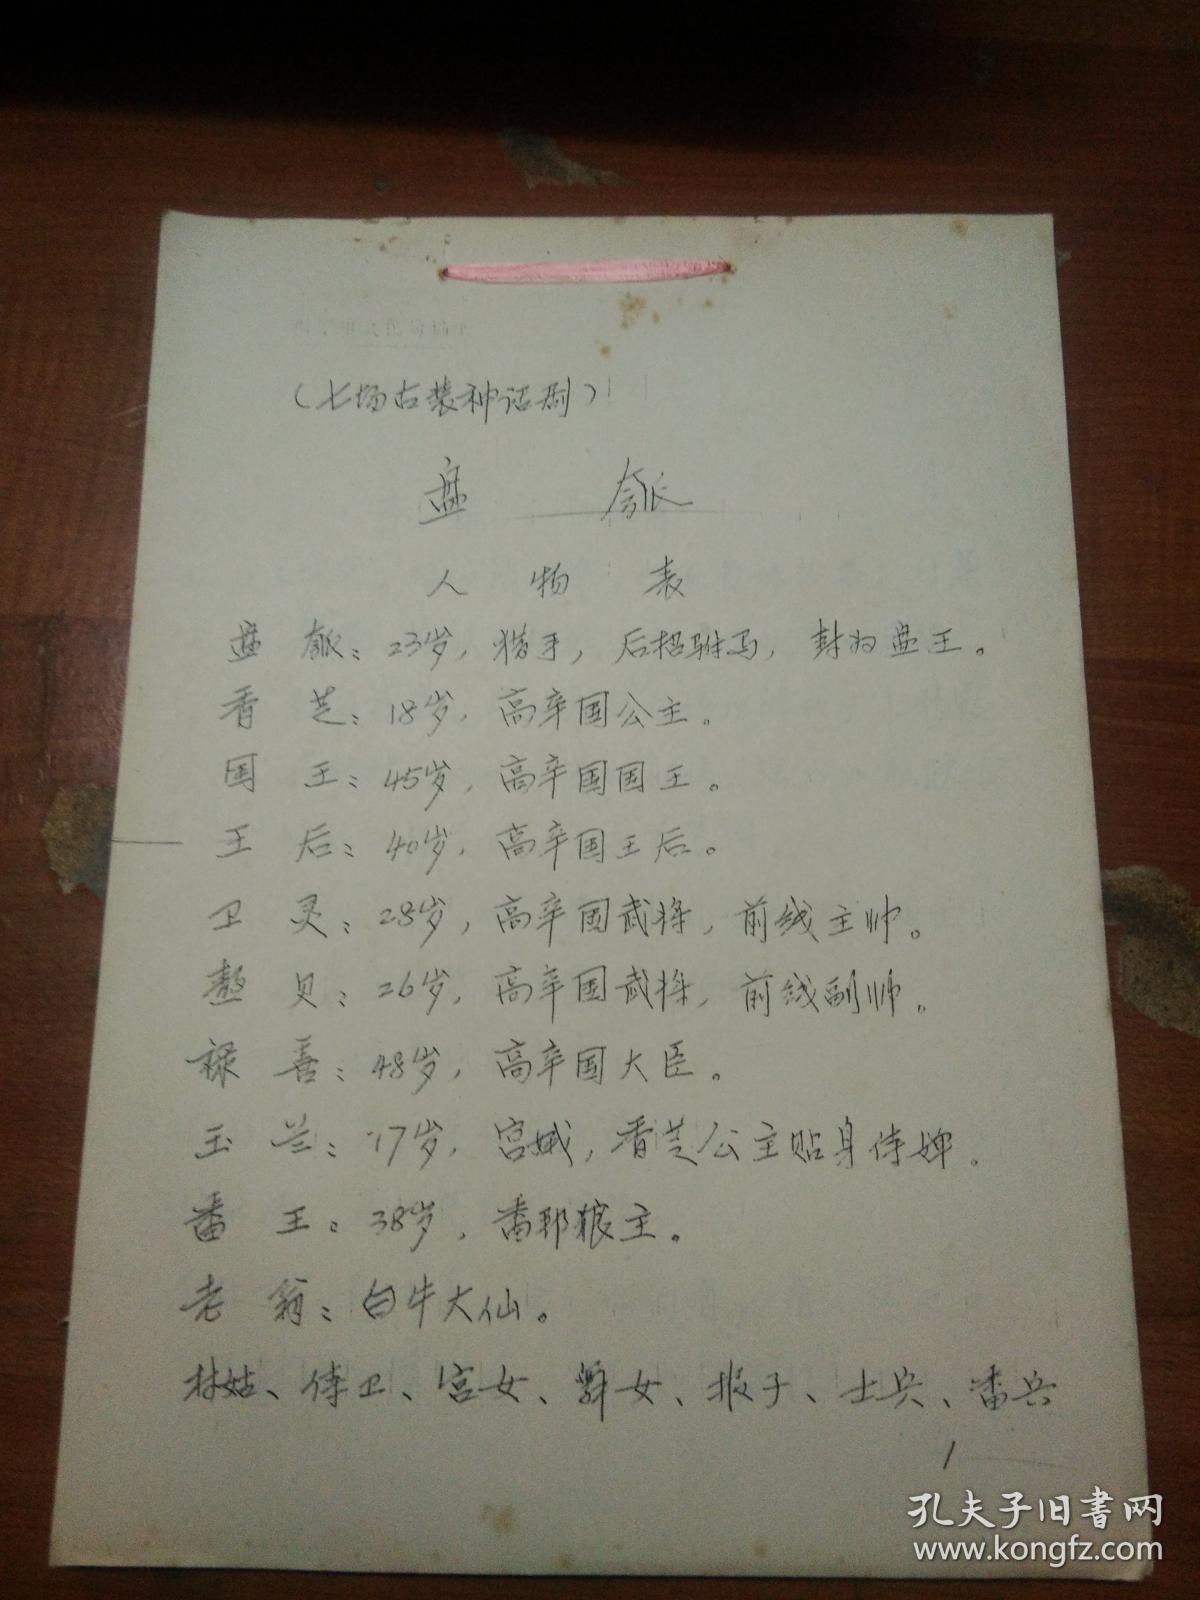 （七场古装神话剧）
盘 瓠
人 物 表
盘 瓠：23岁，猎手，后招驸马，封为盘王。
香 芝：18岁，高辛国公主。
国 王：45岁，高辛国国王。
王 后：40岁，高辛国王后。
卫 灵：28岁，高辛国武将，前线主帅。
贝：26岁，高辛国武将，前线副帅。
禄 善：48岁，高辛国大臣。
玉 兰：17岁，宫娥，香芝公主贴身侍婢。
番 王：38岁，番邦狼主。
老 翁：白牛大仙。
村姑、侍卫、宫女、舞女、报子、士兵、番兵
1
孔夫子旧书网
www.kongfz.com